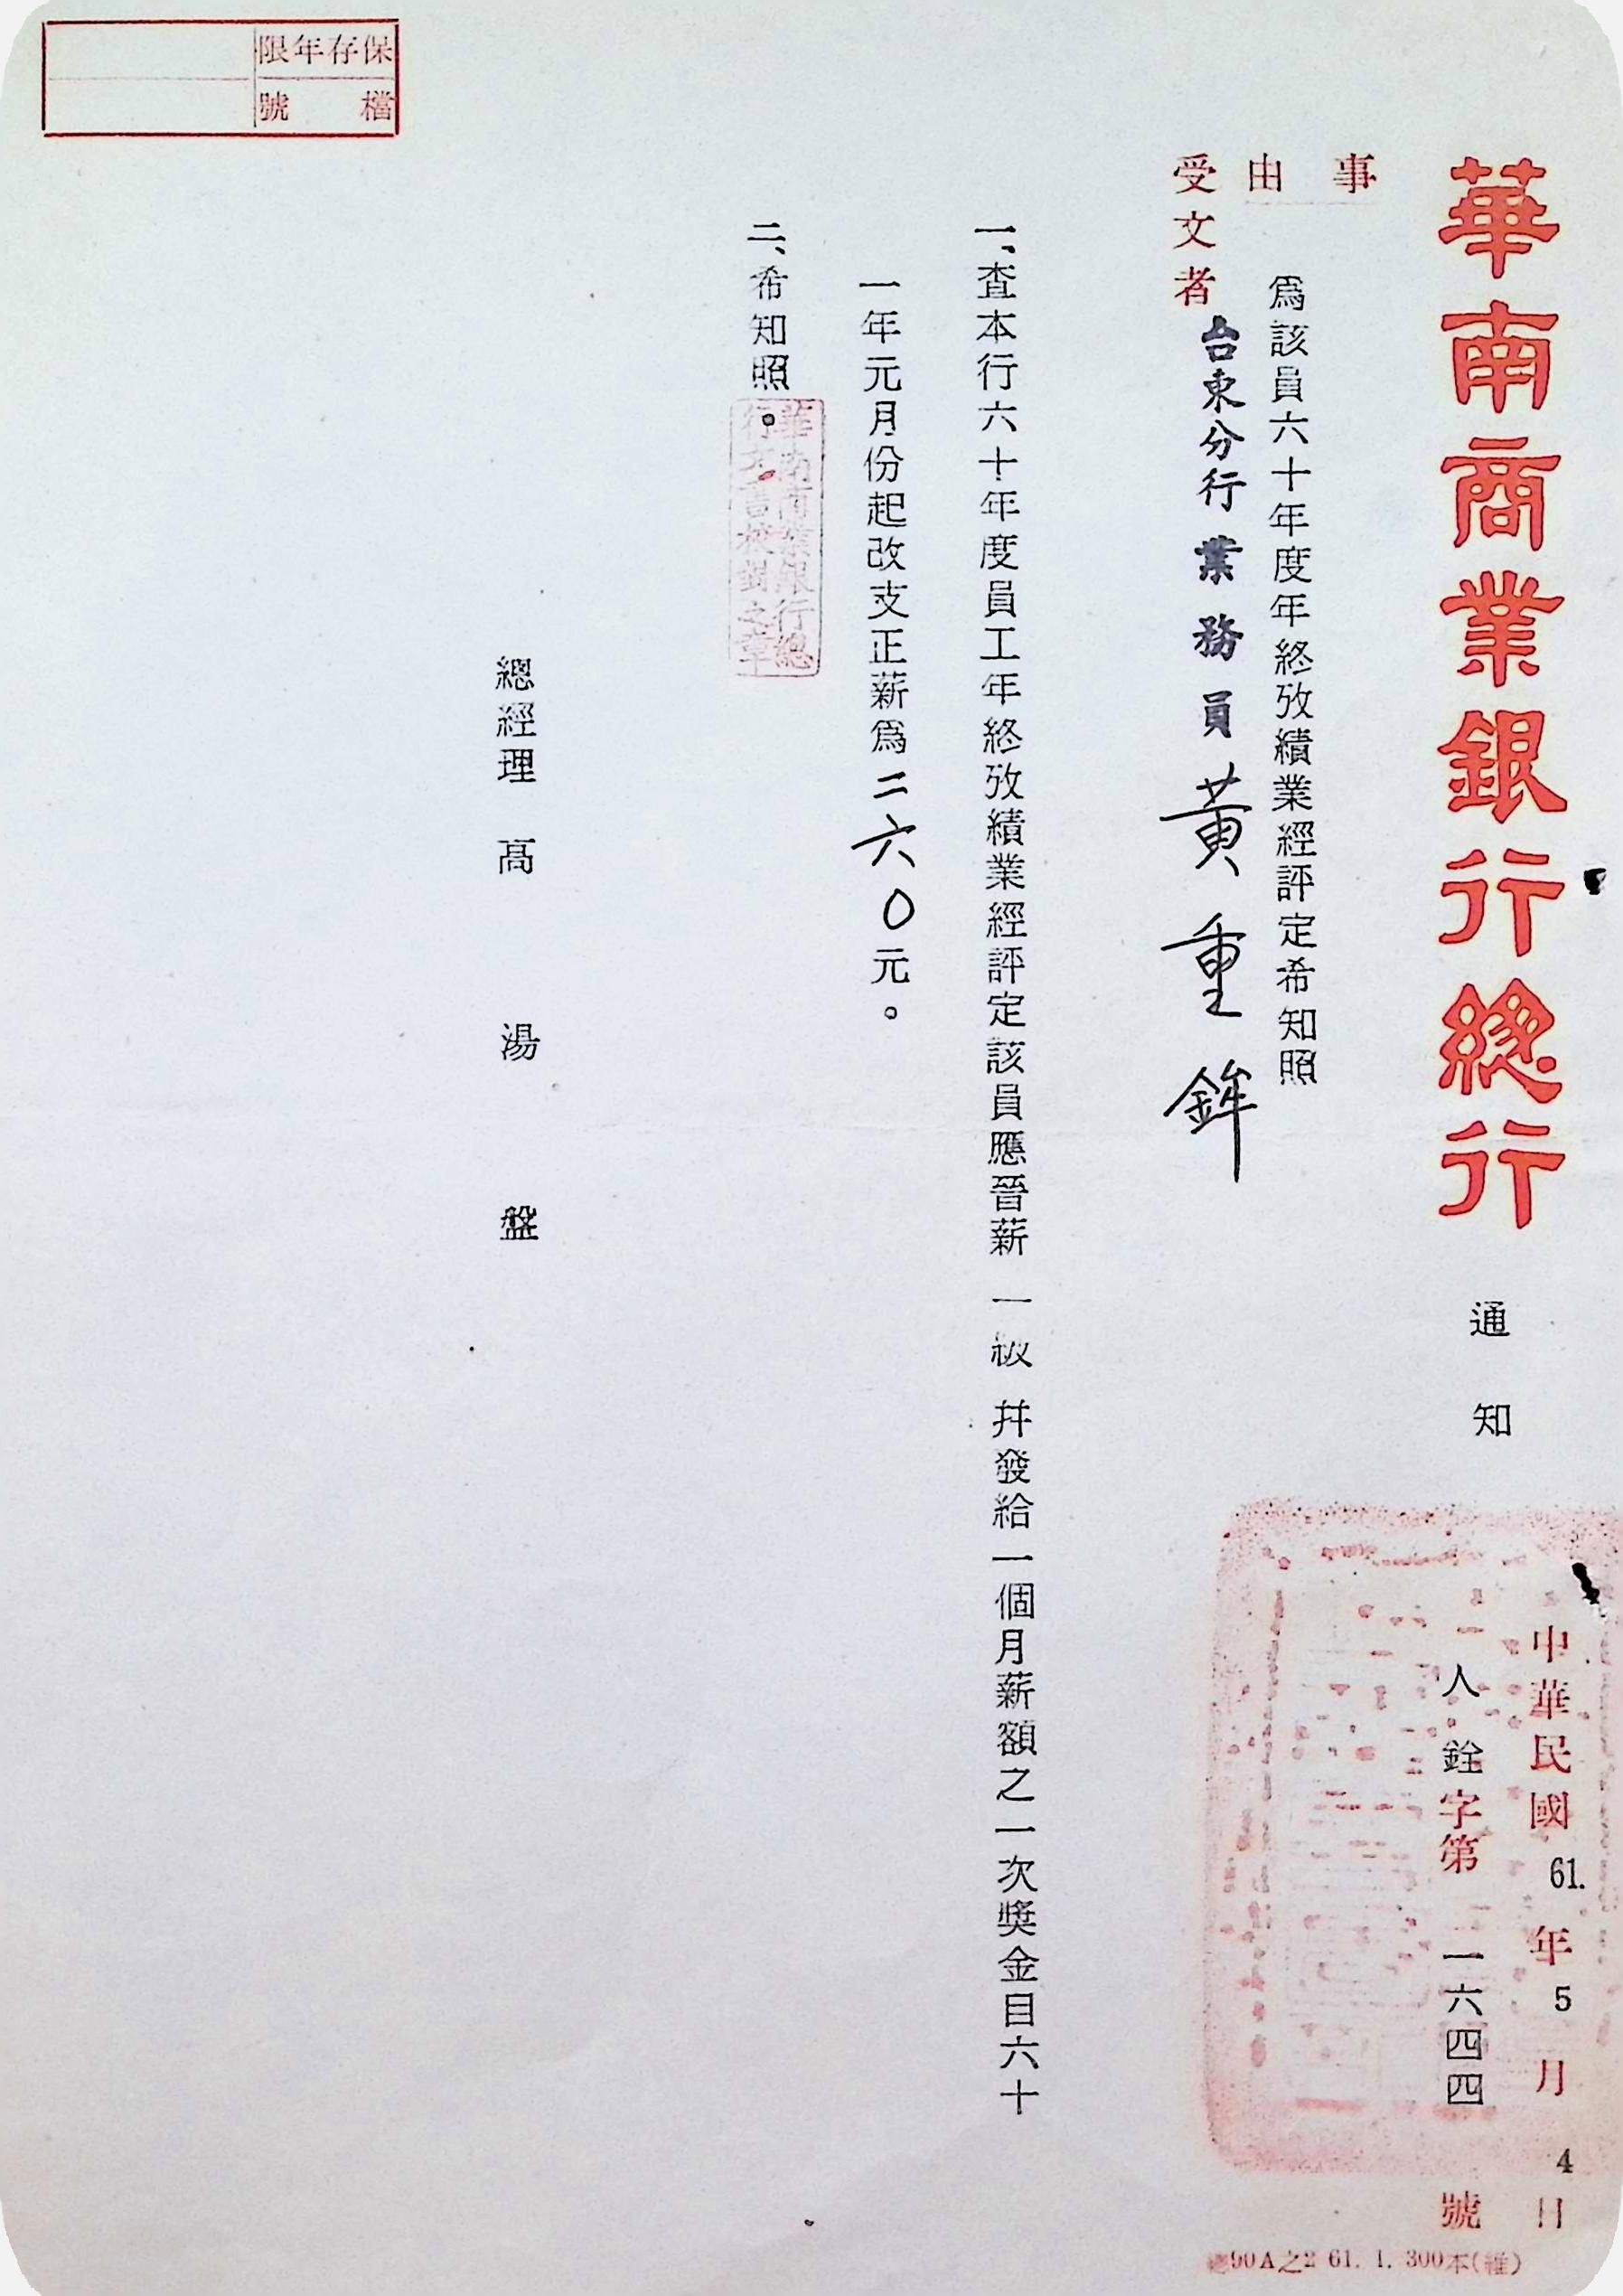 華南商業銀行總行 通知
中華民國 61. 年 5 月 4 日
人銓字第 一六四四 號
事由
為該員六十年度年終攷績業經評定希知照
受文者 台東分行業務員 黃重鉾
一、查本行六十年度員工年終攷績業經評定該員應晉薪 一級 幷發給一個月薪額之一次獎金自六十
一年元月份起改支正薪為二六〇元。
二、希知照。
華南商業銀行總
行文書校對之章
總經理 高湯盤
保存年限
檔號
90A之2 61. 1. 300本(維)